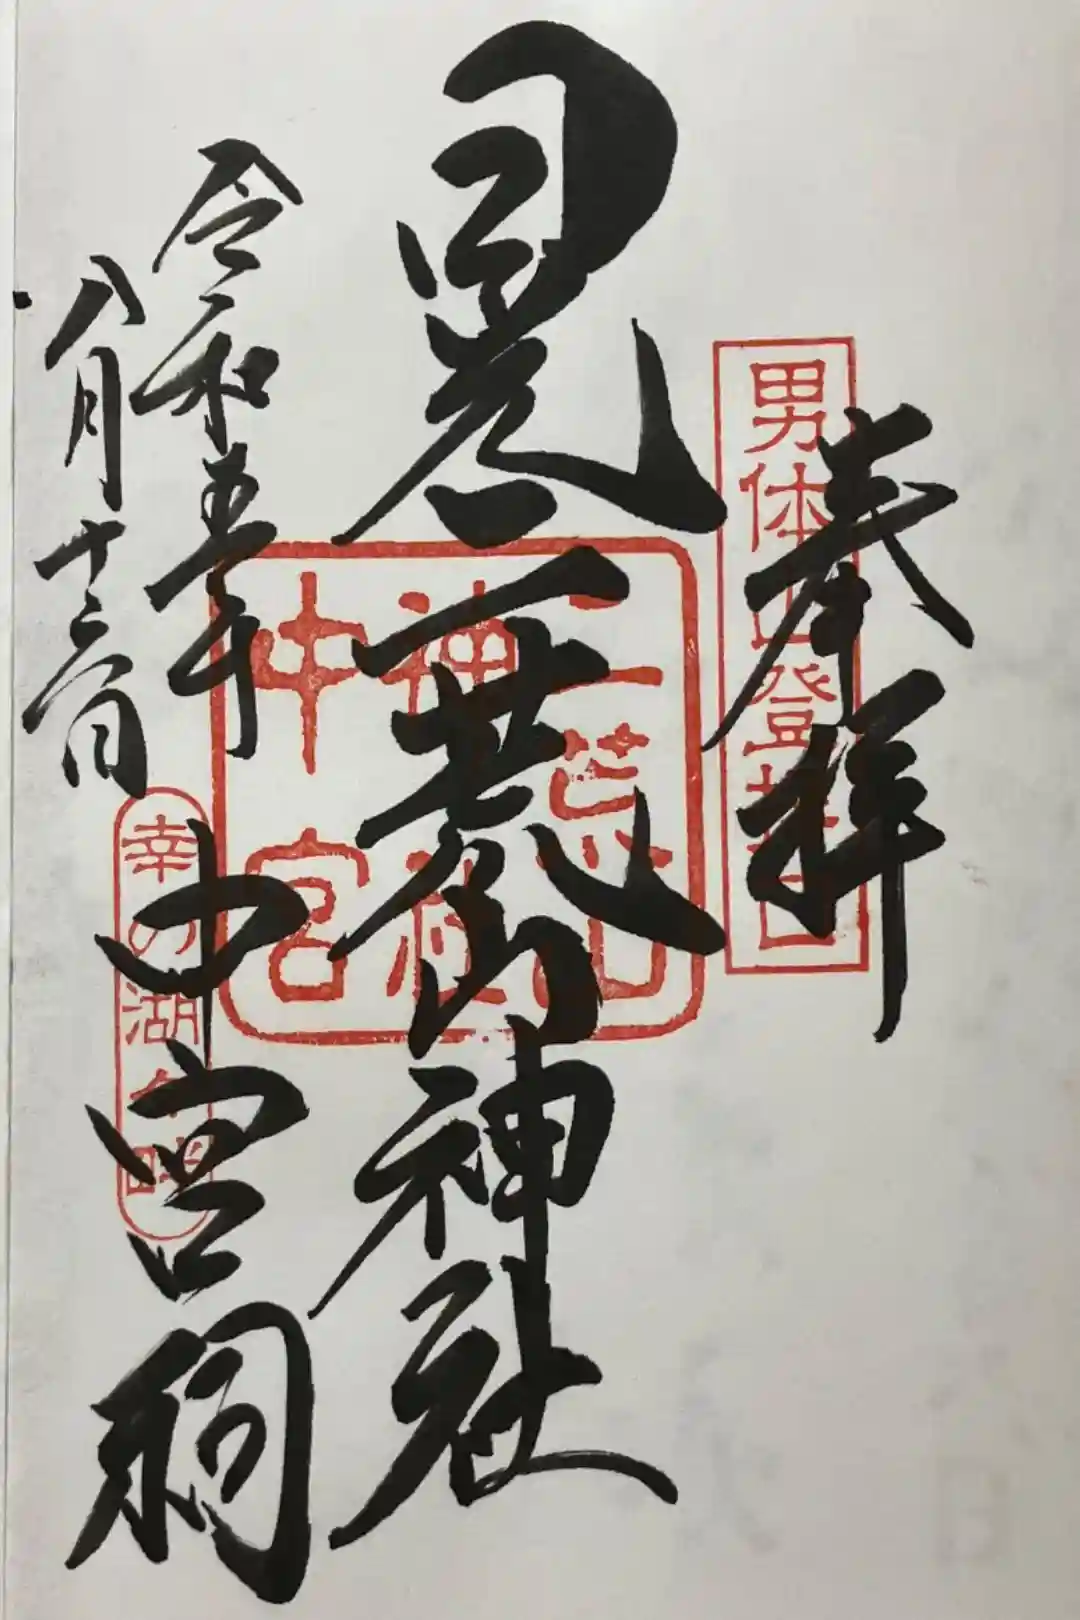 奉拝
男体山登拝口
日光二荒山神社
二荒山
神社
中宮
中宮祠
幸の湖畔
令和五年
八月十六日